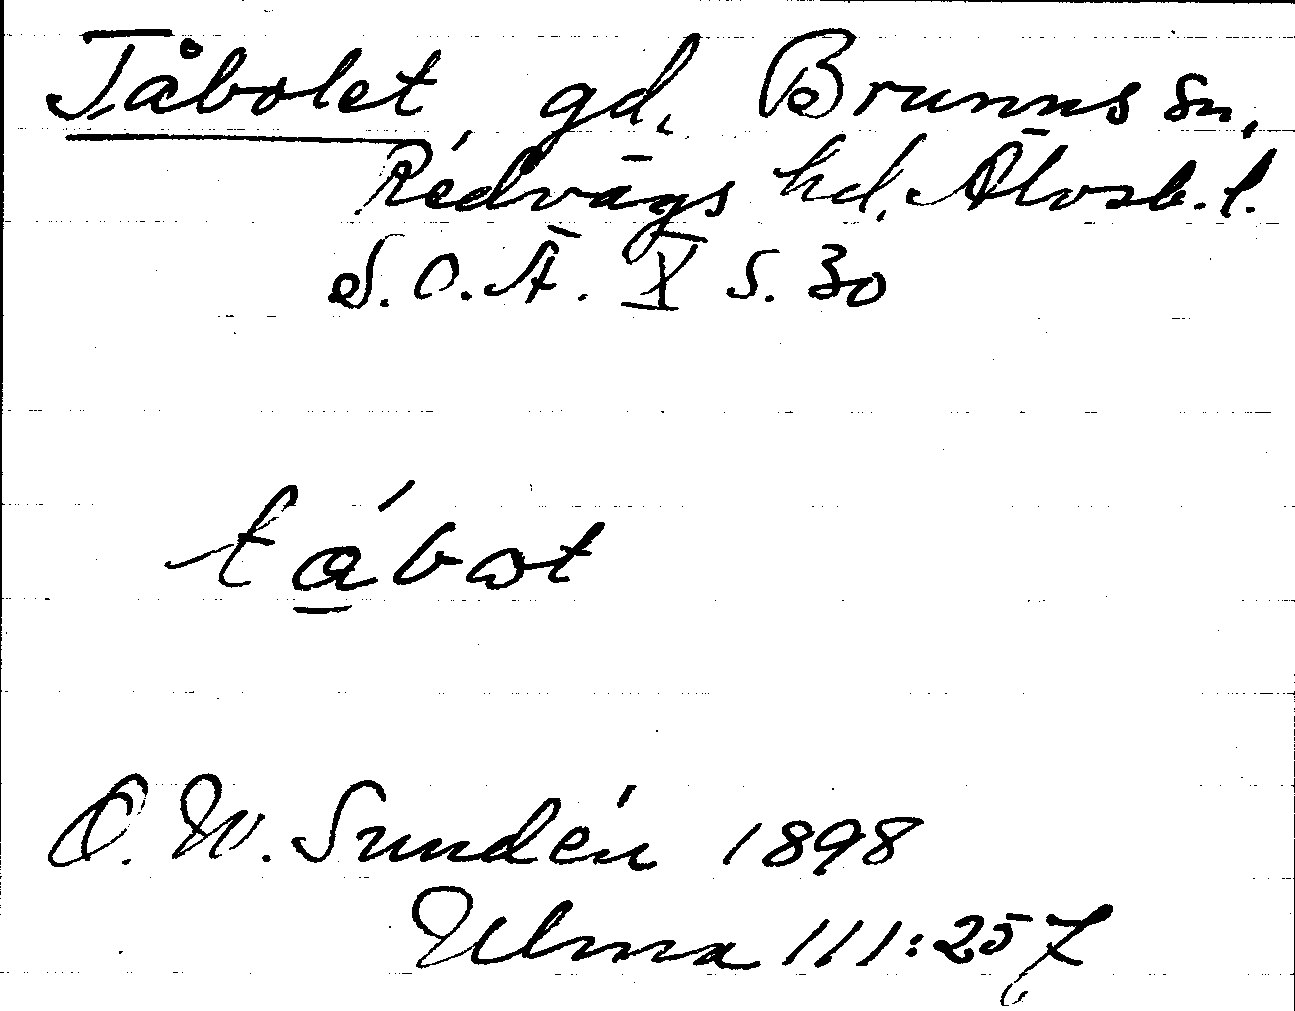 Tåbolet, gd, Brunns sn,
Redvägs hd, Älvsb. l.
S.O.Ä. X s. 30
tábωt
D. W. Sundén 1898
Ulma 111:257